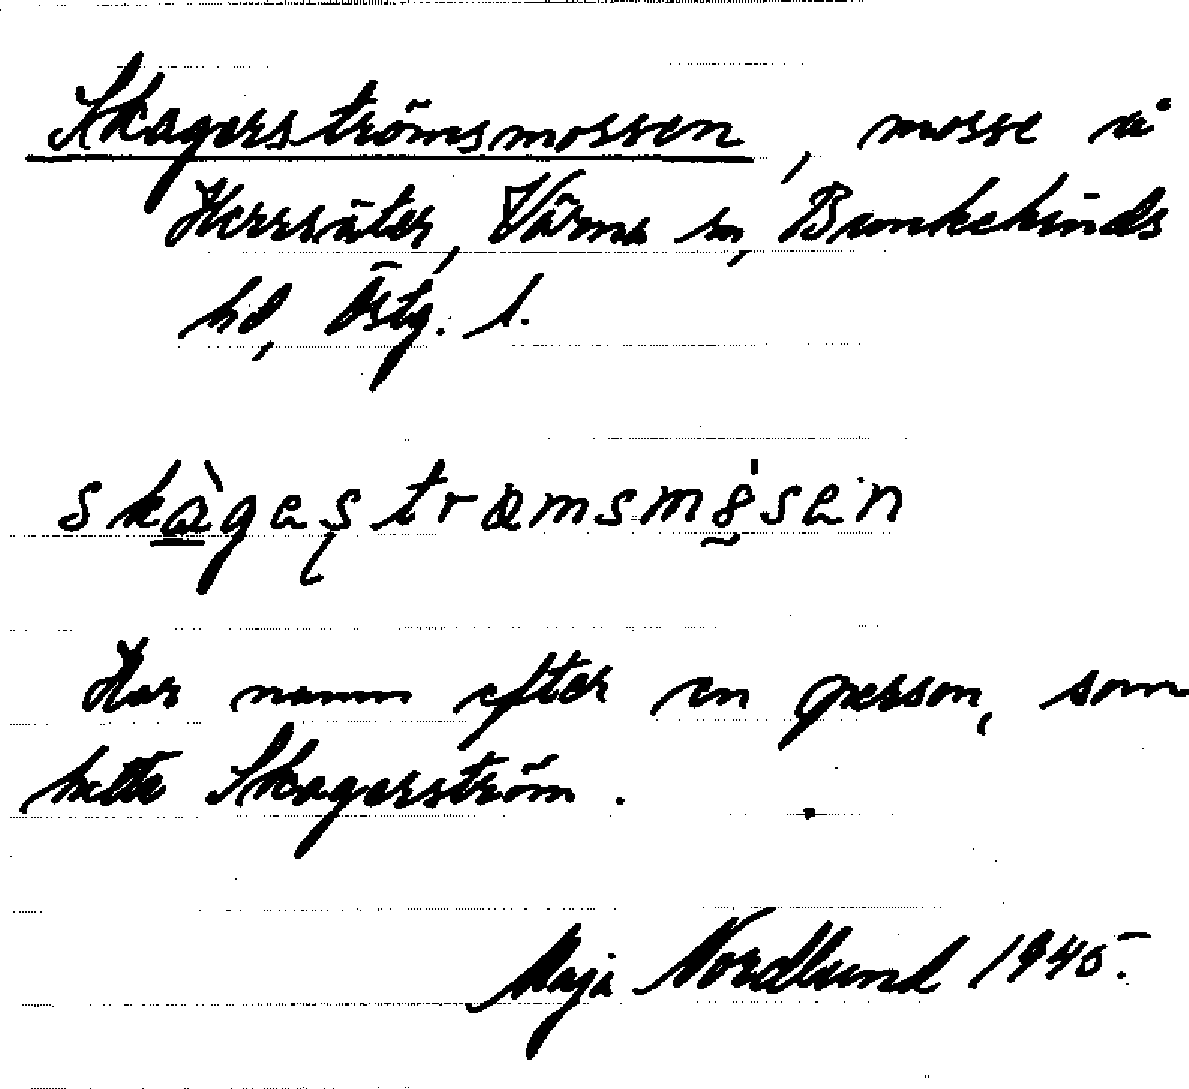 Skagerströmsmossen, mosse å
Herrsäter, Vårna sn, Bankekinds
hd, Östg. l.
Har namn efter en person, som
hette Skagerström.
Maja Nordlund 1945.